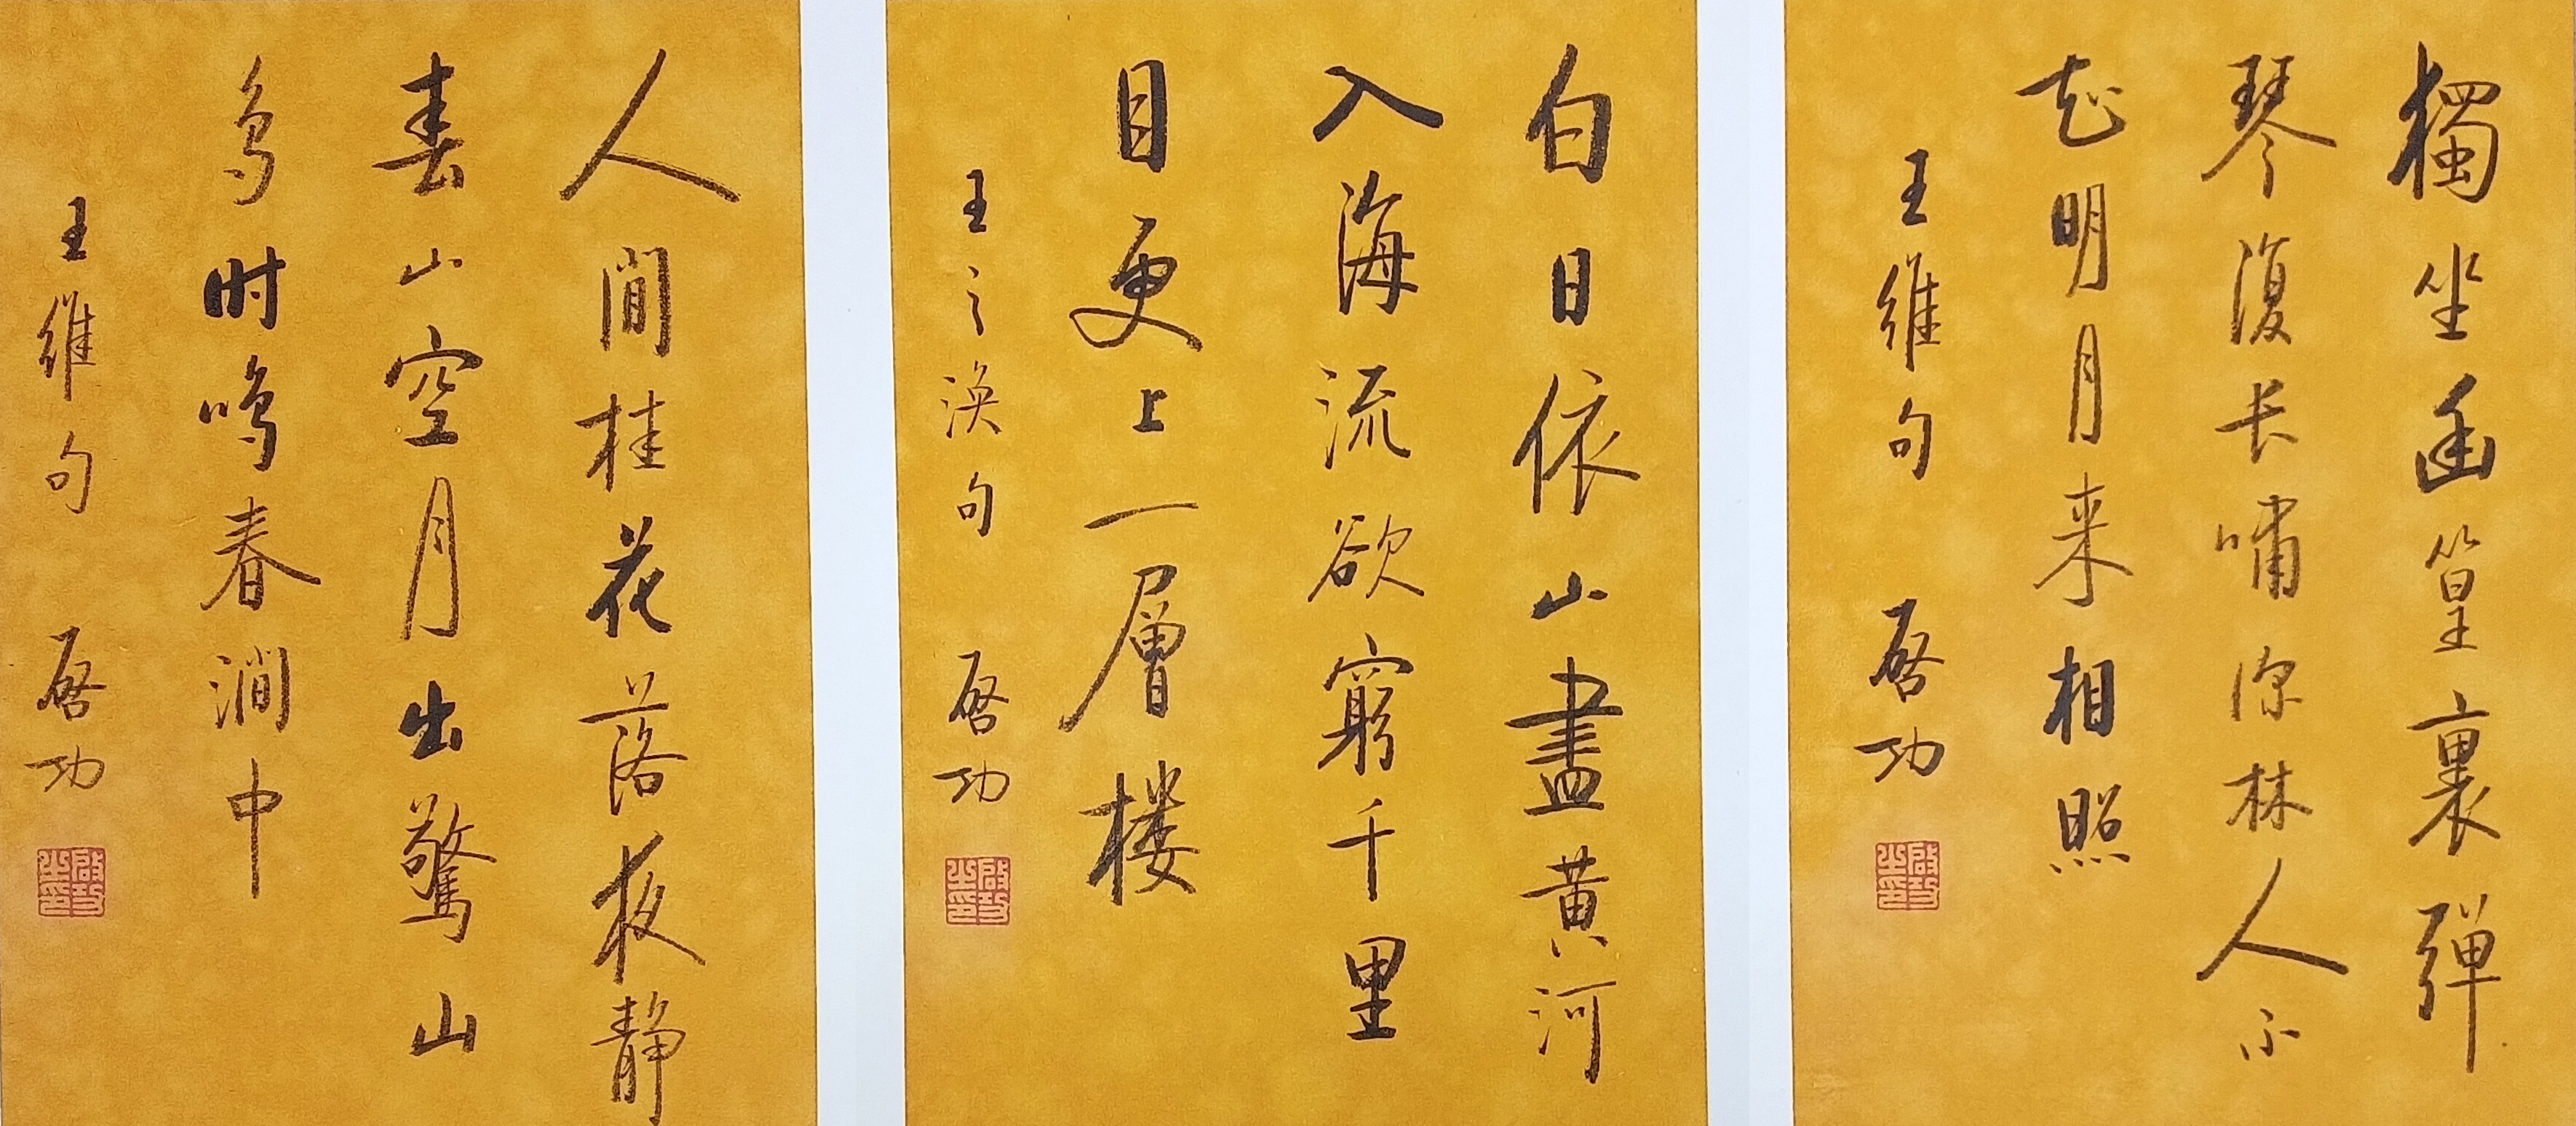 獨坐幽篁裏彈
琴復长嘯深林人不
知明月来相照
王維句 啓功
啟功之印
白日依山盡黄河
入海流欲窮千里
目更上一層楼
王之渙句 啓功
啟功之印
人間桂花落夜静
春山空月出驚山
鸟时鸣春澗中
王維句 啓功
啟功之印